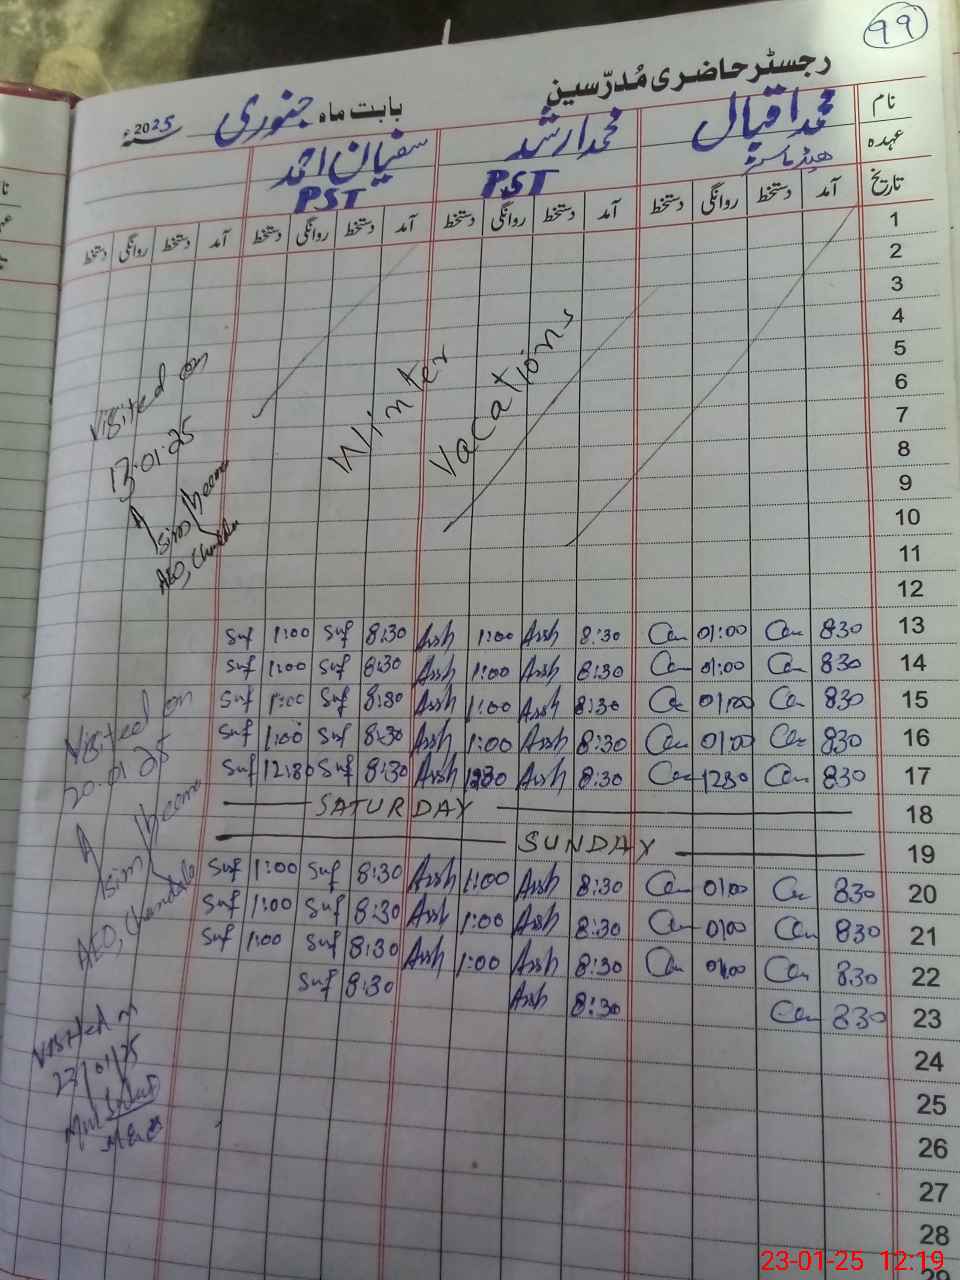 99
رجسٹر حاضری مُدرّسین
بابت ماہ جنوری 2025ء
نام محمد اقبال محمد ارشد سفیان احمد
عہدہ ہیڈ ماسٹر PST PST
تاریخ آمد دستخط روانگی دستخط آمد دستخط روانگی دستخط آمد دستخط روانگی دستخط آمد دستخط روانگی دستخط
1
2
3
4
5
6
7
8
9
10
11
12
Winter
Vacations
Visited on
13.01.25
AEO,
Suf 1:00 Suf 8:30 Arsh 1:00 Arsh 8:30 01:00 830 13
Suf 1:00 Suf 8:30 Arsh 1:00 Arsh 8:30 01:00 830 14
Suf 1:00 Suf 8:30 Arsh 1:00 Arsh 8:30 01:00 830 15
Suf 1:00 Suf 8:30 Arsh 1:00 Arsh 8:30 01:00 830 16
Suf 12:30 Suf 8:30 Arsh 1230 Arsh 8:30 1230 830 17
SATURDAY 18
SUNDAY 19
Suf 1:00 Suf 8:30 Arsh 1:00 Arsh 8:30 01:00 830 20
Suf 1:00 Suf 8:30 Arsh 1:00 Arsh 8:30 01:00 830 21
Suf 1:00 Suf 8:30 Arsh 1:00 Arsh 8:30 01:00 830 22
Suf 8:30 Arsh 8:30 830 23
Visited on
20.01.25
AEO,
Visited on
23/01/25
24
25
26
27
28
29
23-01-25 12:19